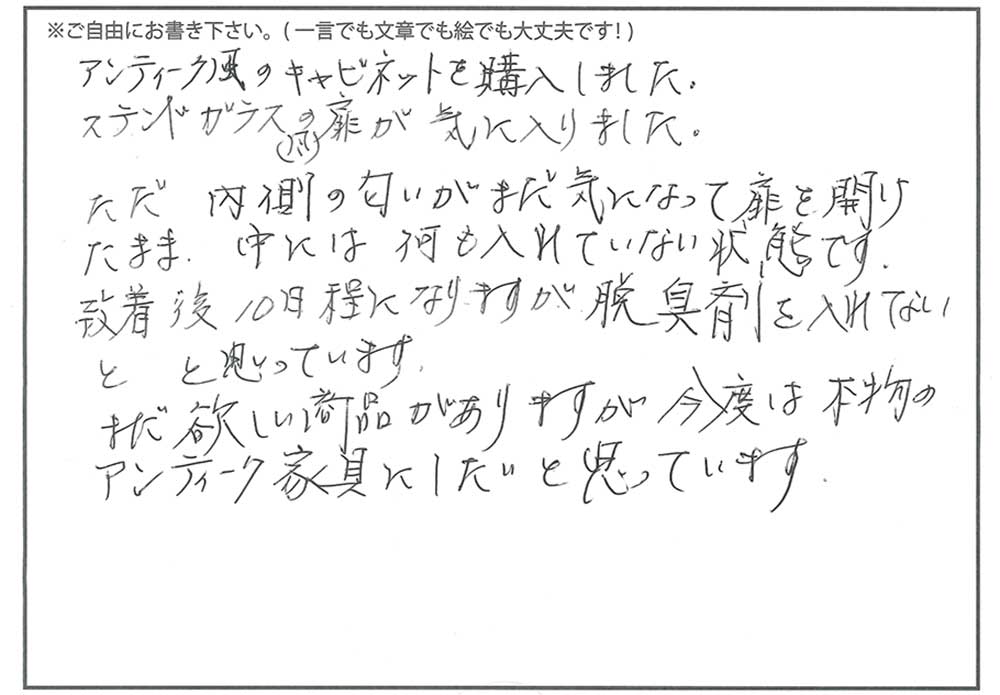 ※ご自由にお書き下さい。(一言でも文章でも絵でも大丈夫です!)
アンティーク風のキャビネットを購入しました。
ステンドガラス(風)の扉が気に入りました。
ただ 内側の匂いがまだ気になって扉を開け
たまま. 中には何も入れていない状態です.
到着後10日程になりますが脱臭剤を入れない
と と思っています.
まだ欲しい商品がありますが今度は本物の
アンティーク家具にしたいと思っています.